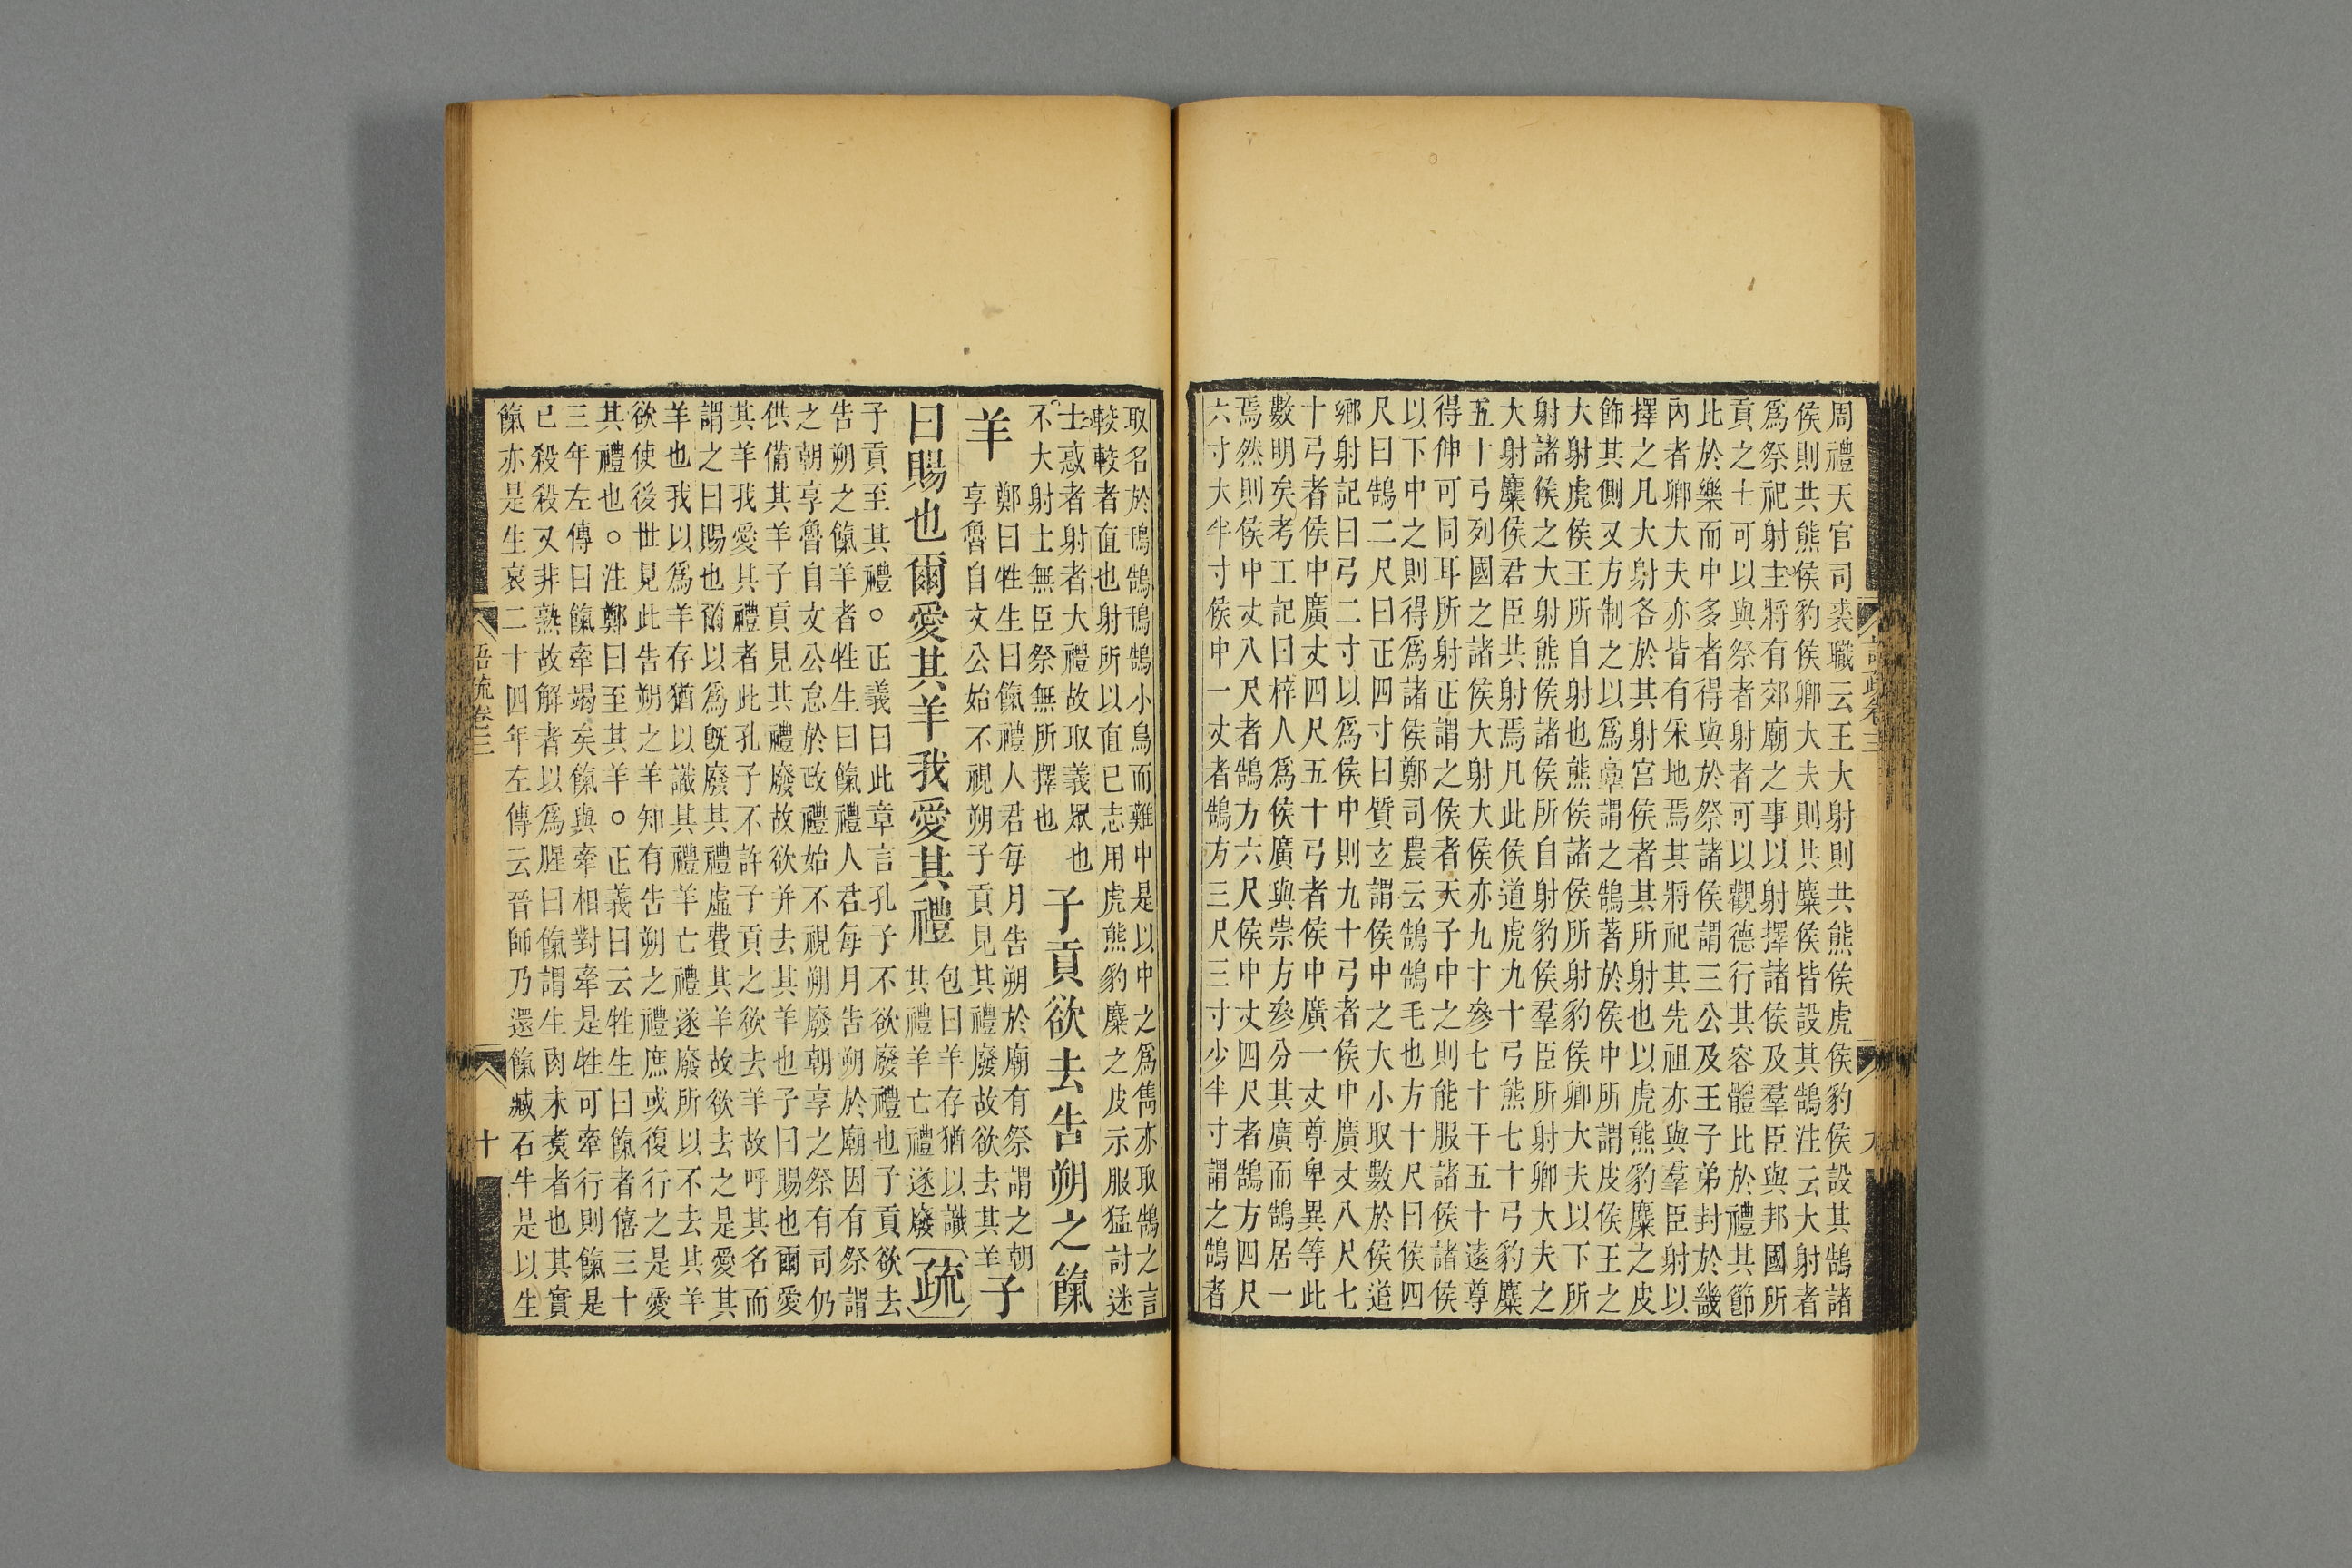 周禮天官司裘職云王大射則共熊侯虎侯豹侯設其鵠諸
侯則共熊侯豹侯卿大夫則共麋侯皆設其鵠注云大射者
爲祭祀射主將有郊廟之事以射擇諸侯及羣臣與邦國所
貢之士可以與祭者射者可以觀德行其容體比於禮其節
比於樂而中多者得與於祭諸侯謂三公及王子弟封於畿
內者卿大夫亦皆有采地焉其將祀其先祖亦與羣臣射以
擇之凡大射各於其射宮侯者其所射也以虎熊豹麋之皮
飾其側又方制之以爲臺謂之鵠著於侯中所謂皮侯王之
大射虎侯王所自射也熊侯諸侯所射豹侯卿大夫以下所
射諸侯之大射熊侯諸侯所自射豹侯羣臣所射卿大夫之
大射麋侯君臣共射焉凡此侯道虎九十弓熊七十弓豹麋
五十弓列國之諸侯大射大侯亦九十參七十干五十遠尊
得伸可同耳所射正謂之侯者天子中之則能服諸侯諸侯
以下中之則得爲諸侯鄭司農云鵠鵠毛也方十尺曰侯四
尺曰鵠二尺曰正四寸曰質玄謂侯中之大小取數於侯道
鄉射記曰弓二寸以爲侯中則九十弓者侯中廣丈八尺七
十弓者侯中廣丈四尺五十弓者侯中廣一丈尊卑異等此
數明矣考工記曰梓人爲侯廣與崇方參分其廣而鵠居一
焉然則侯中丈八尺者鵠方六尺侯中丈四尺者鵠方四尺
六寸大半寸侯中一丈者鵠方三尺三寸少半寸謂之鵠者
取名於鳱鵠鳱鵠小鳥而難中是以中之爲雋亦取鵠之言
較較者直也射所以直已志用虎熊豹麋之皮示服猛討迷
士惑者射者大禮故取義眾也
不大射士無臣祭無所擇也
子貢欲去告朔之餼
羊
鄭曰牲生曰餼禮人君每月告朔於廟有祭謂之朝
享魯自文公始不視朔子貢見其禮廢故欲去其羊
子
曰賜也爾愛其羊我愛其禮
包曰羊存猶以識
其禮羊亡禮遂廢
疏
子貢至其禮○正義曰此章言孔子不欲廢禮也子貢欲去
告朔之餼羊者牲生曰餼禮人君每月告朔於廟因有祭謂
之朝享魯自文公怠於政禮始不視朔廢朝享之祭有司仍
供備其羊子貢見其禮廢故欲并去其羊也子曰賜也爾愛
其羊我愛其禮者此孔子不許子貢之欲去羊故呼其名而
謂之曰賜也爾以爲旣廢其禮虛費其羊故欲去之是愛其
羊也我以爲羊存猶以識其禮羊亡禮遂廢所以不去其羊
欲使後世見此告朔之羊知有告朔之禮庶或復行之是愛
其禮也○注鄭曰至其羊○正義曰云牲生曰餼者僖三十
三年左傳曰餼牽竭矣餼與牽相對牽是牲可牽行則餼是
已殺殺又非熟故解者以爲腥曰餼謂生肉未煮者也其實
餼亦是生哀二十四年左傳云晉師乃還餼臧石牛是以生
語疏卷三
十